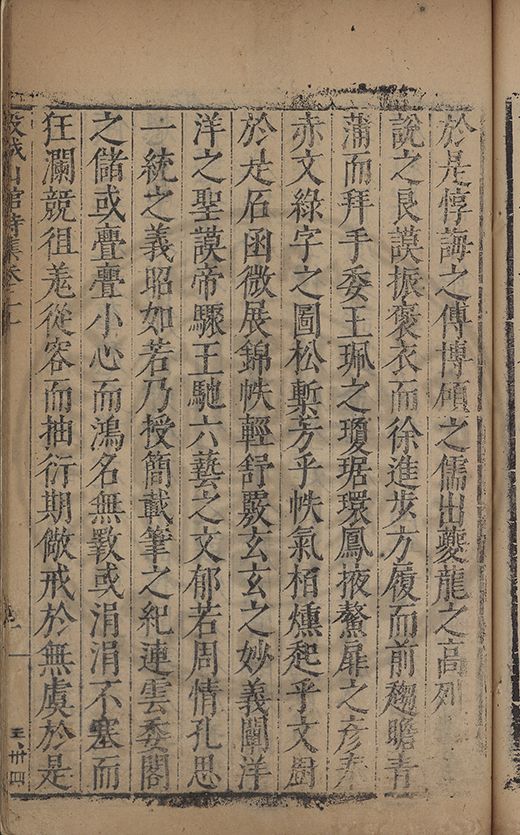 於是惇誨之傅博碩之儒出夔龍之高列
說之良謨振褒衣而徐進步方履而前趨瞻青
蒲而拜手委玉珮之瓊琚環鳳掖鰲扉之彥奉
赤文綠字之圖松槧芳乎帙氣栢燻起乎文厨
於是石函微展錦帙輕舒覈玄玄之妙義闡洋
洋之聖謨帝驟王馳六藝之文郁若周情孔思
一統之義昭如若乃授簡載筆之紀連雲委閣
之儲或亹亹小心而鴻名無斁或涓涓不塞而
狂瀾競徂羌從容而抽衍期儆戒於無虞於是
穀城山館詩集卷之一